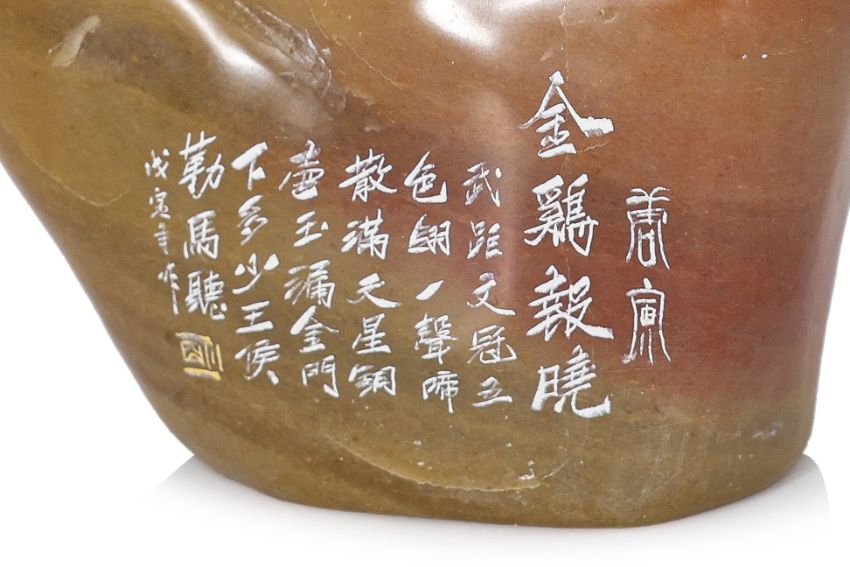 唐寅
金鷄報曉
武距文冠五
色翎一聲啼
散滿天星銅
壺玉漏金門
下多少王侯
勒馬聽
戊寅年作